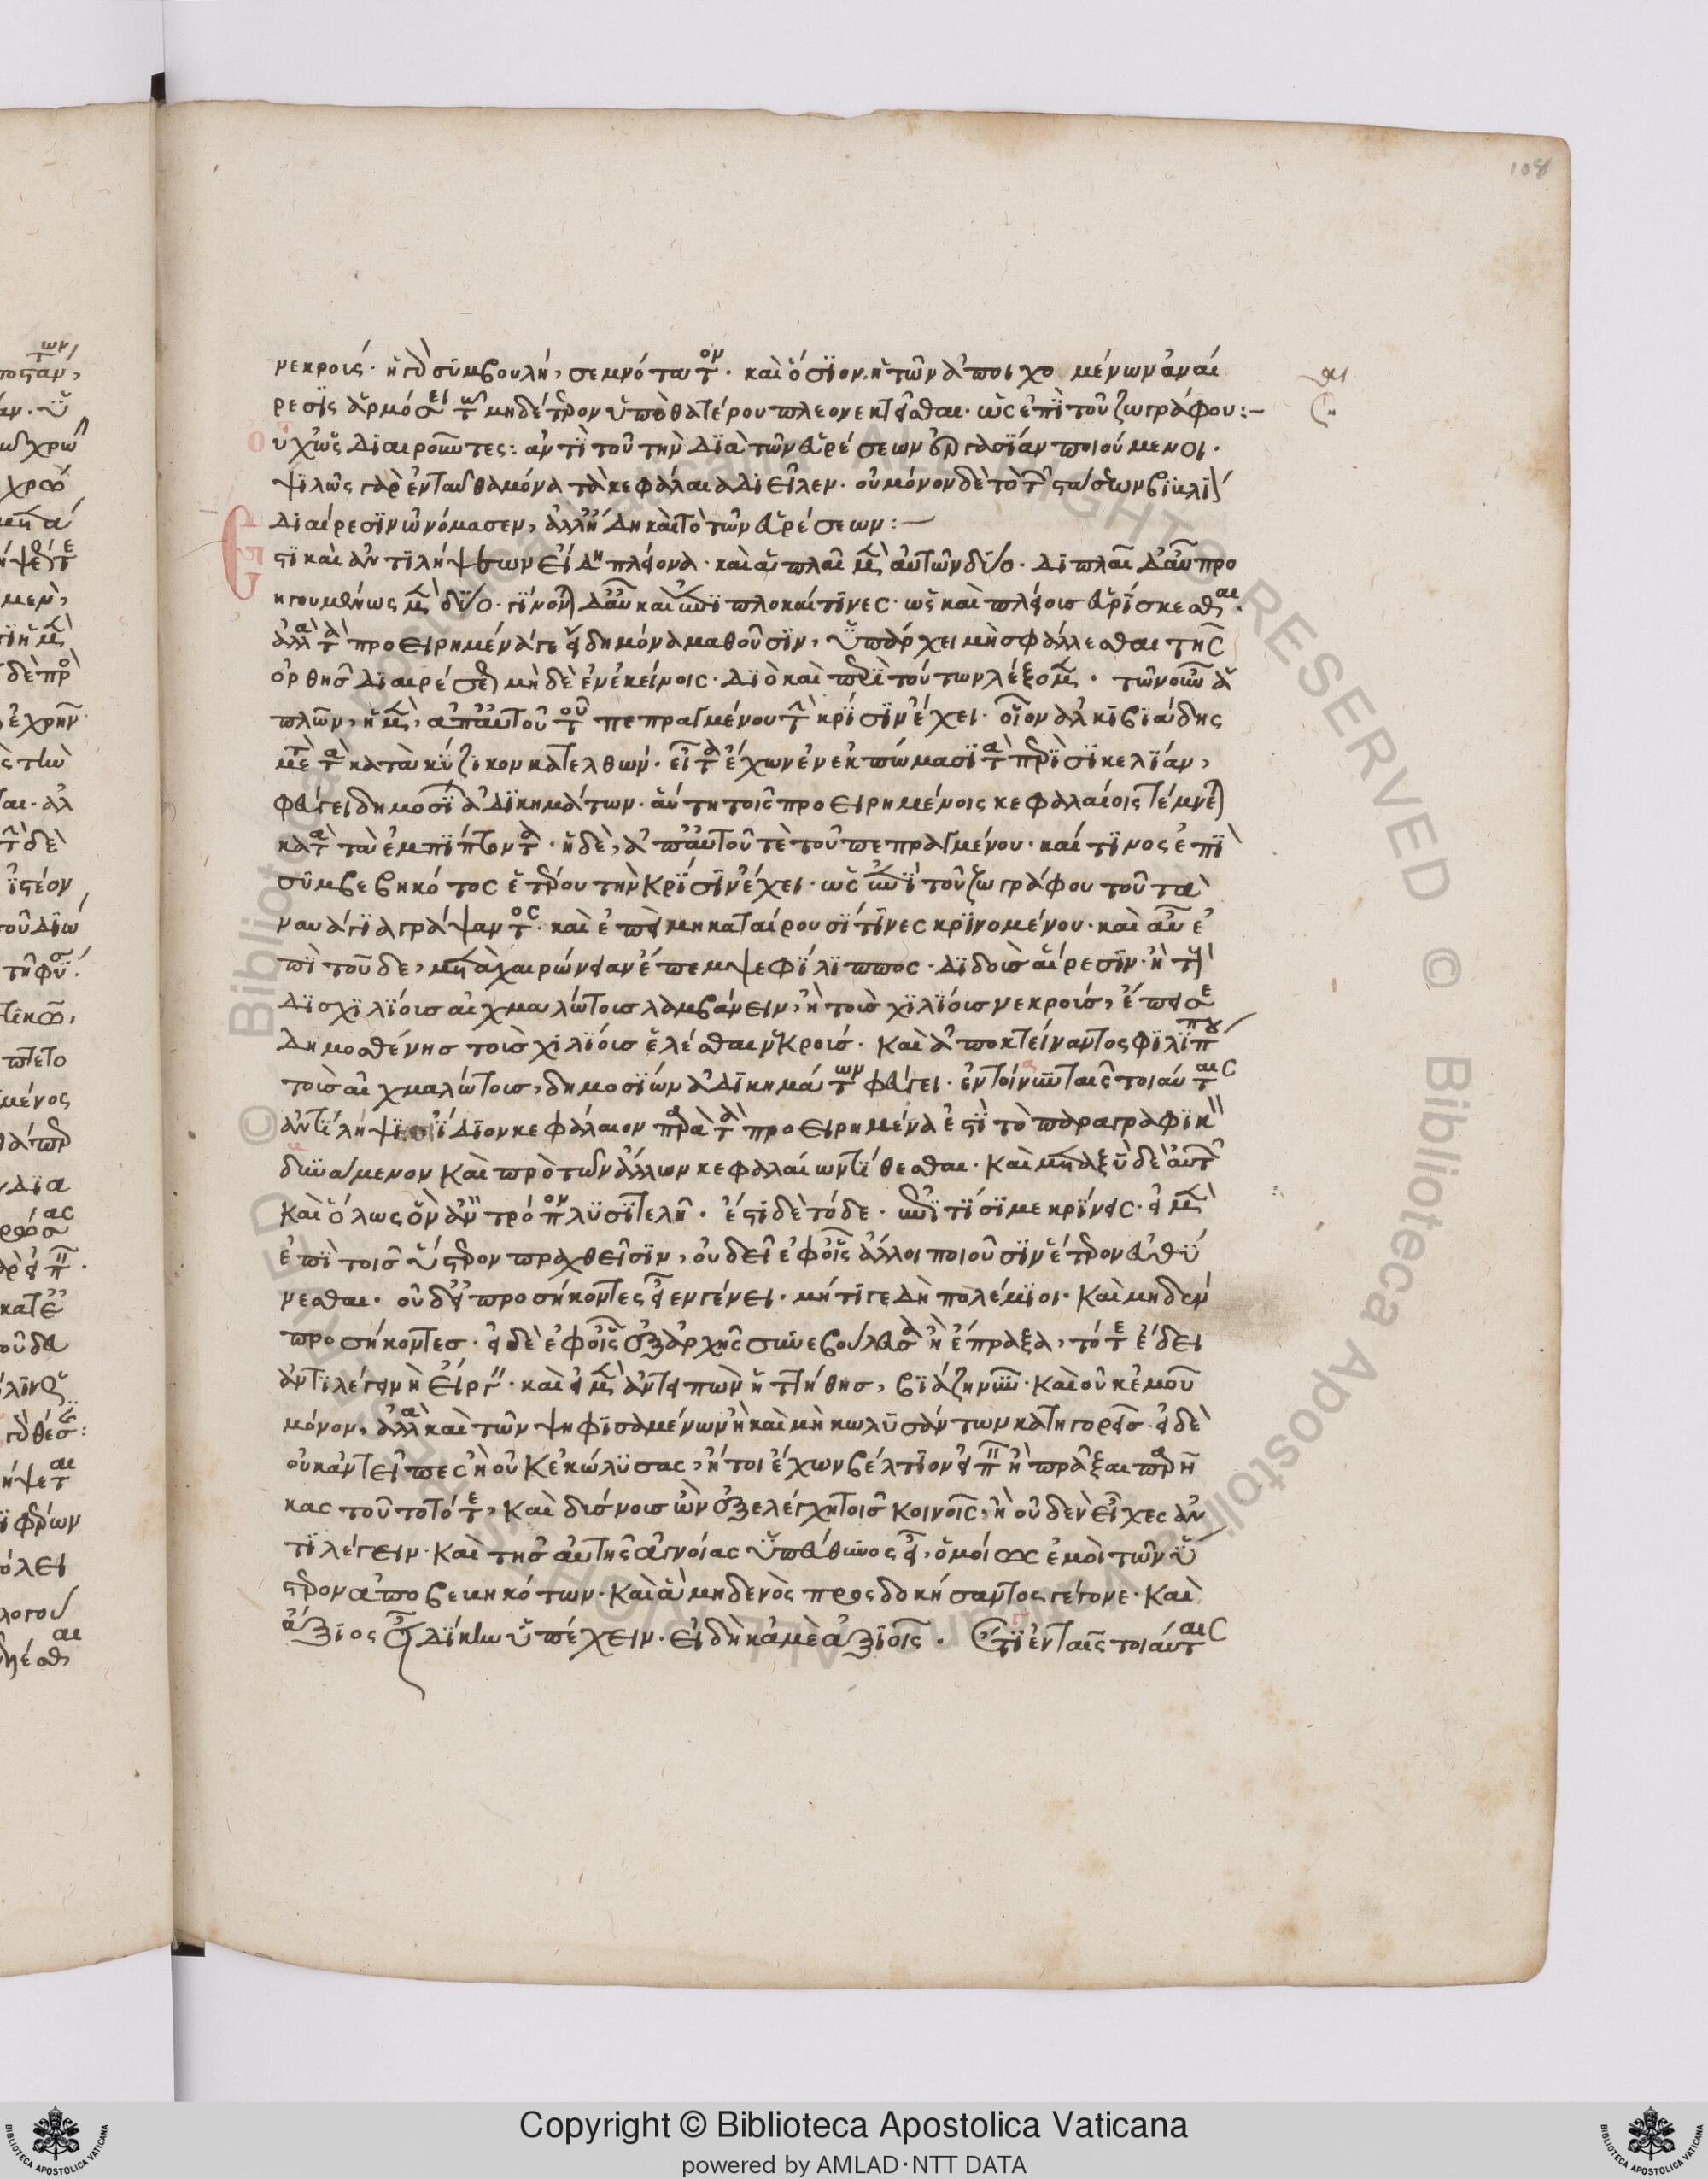 νεκροίς· ἡ γὰρ συμβουλή, σεμνότατον· καὶ ὅσϊον. ἡ τῶν ἀποιχομένων ἀναί
ρεσϊς ἁρμόσει τῷ μηδέτερον ὑπὸ θατέρου πλεονεκτεῖσθαι· ὡς ἐπὶ τοῦ ζωγράφου:–
οὐχ ὡς διαιροῦντες: ἀντὶ τοῦ τὴν διὰ τῶν εὑρέσεων ἐργασίαν ποιούμενοι·
ψιλῶς γὰρ ἐνταῦθα μόνα τὰ κεφάλαια διεῖλεν· οὐ μόνον δὲ τὸ τῶν στάσεων βιβλίον
διαίρεσιν ὠνόμασεν, ἀλλ' ἤδη καὶ τὸ τῶν εὑρέσεων:–
Ἔστι καὶ ἀντιλήψεων εἴδη πλείονα· καὶ ἁπλαῖ μὲν αὐτῶν δύο· διπλαῖ δ' αὖ προ
ηγουμένως μὲν δύο· γίνονται δ' αὖ καὶ ἐπιπλοκαί τινες· ὡς καὶ πλείοις εὑρίσκεσθαι·
ἀλλὰ τὰ προειρημένα γε εἰ δὴ μόνα μαθοῦσιν, ὑπάρχει μὴ σφάλλεσθαι τῆς
ὀρθῆς διαιρέσεως μηδὲ ἐν ἐκείνοις· διὸ καὶ περὶ τούτων λέξομεν· τῶν οὖν ἁ
πλῶν, ἡ μὲν, ἀπ' αὐτοῦ τοῦ πεπραγμένου τὴν κρίσιν ἔχει· οἷον ἀλκιβιάδης
μετὰ τὰ κατὰ κύζικον κατελθών· εἶτα ἔχων ἐν ἐκπώμασι τὰ περὶ σικελίαν,
φεύγει δημοσίᾳ ἀδικημάτων· αὕτη τοῖς προειρημένοις κεφαλαίοις τέμνεται
κατὰ τὰ ἐμπίπτοντα· ἡ δὲ, ἀπ' αὐτοῦ τε τοῦ πεπραγμένου· καί τινος ἐπὶ
συμβεβηκότος ἑτέρου τὴν κρίσιν ἔχει· ὡς ἐπὶ τοῦ ζωγράφου τοῦ τὰ
ναυάγια γράψαντος· καὶ ἐπεὶ μὴ καταίρουσί τινες κρινομένου· καὶ αὖ ἐ
πὶ τοῦδε, μετὰ χαιρώνειαν ἔπεμψε φίλιππος· διδοὺς αἵρεσιν· ἢ τοὺς
δισχιλίους αἰχμαλώτους λαμβάνειν, ἢ τοὺς χιλίους νεκρούς, ἔπεισε
δημοσθένης τοὺς χιλίους ἑλέσθαι νεκρούς· καὶ ἀποκτείναντος φιλίππου
τοὺς αἰχμαλώτους, δημοσίων ἀδικημάτων φεύγει· ἐν τοίνυν ταῖς τοιαύταις
ἀντιλήψεσιν ἴδιον κεφάλαιον παρὰ τὰ προειρημένα ἐστὶ τὸ παραγραφικὸν
δυνάμενον καὶ πρὸ τῶν ἄλλων κεφαλαίων τίθεσθαι· καὶ μεταξὺ δὲ αὐτῶν
καὶ ὅλως ὃν ἂν τρόπον λυσιτελῇ· ἔστι δὲ τόδε· ἐπὶ τίσι με κρίνεις· εἰ μὲν
ἐπὶ τοῖς ὕστερον πραχθεῖσιν, οὐ δεῖ ἐφ' οἷς ἄλλοι ποιοῦσιν ἕτερον εὐθύ
νεσθαι· οὐδ' εἰ προσήκοντες εἶεν γένει· μήτι γε δὴ πολέμιοι· καὶ μηδὲν
προσήκοντες· εἰ δὲ ἐφ' οἷς ἐξ ἀρχῆς συνεβούλευσα ἢ ἔπραξα, τότε ἔδει
ἀντιλέγειν ἢ εἴργειν· καὶ εἰ μὲν ἀντειπὼν ἡττήθης, βιάζῃ νῦν· καὶ οὐκ ἐμοῦ
μόνον, ἀλλὰ καὶ τῶν ψηφισαμένων ἢ καὶ μὴ κωλυσάντων κατηγορεῖς· εἰ δὲ
οὐκ ἀντεῖπες ἢ οὐ κεκώλυσας, ἤτοι ἔχων βέλτιον εἰπεῖν ἢ πρᾶξαι παρῆ
κας τοῦτο τότε, καὶ δύσνους ὢν ἐξελέγχῃ τοῖς κοινοῖς· ἢ οὐδὲν εἶχες ἀν
τιλέγειν· καὶ τῆς αὐτῆς ἀγνοίας ὑπεύθυνος εἶ, ὁμοίως ἐμοὶ τῶν ὕ
στερον ἀποβεβηκότων· καὶ ἃ μηδενὸς προσδοκήσαντος γέγονε· καὶ
ἄξιος εἶ δίκην ὑπέχειν· εἰ δὴ κἀμὲ ἀξιοῖς· Ἔτι ἐν ταῖς τοιαύταις
108
Copyright © Biblioteca Apostolica Vaticana
powered by AMLAD·NTT DATA